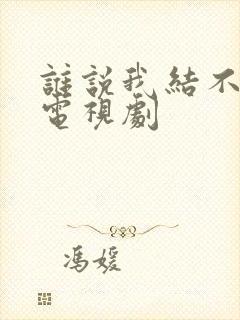 誰說我結不
電視劇
馮媛